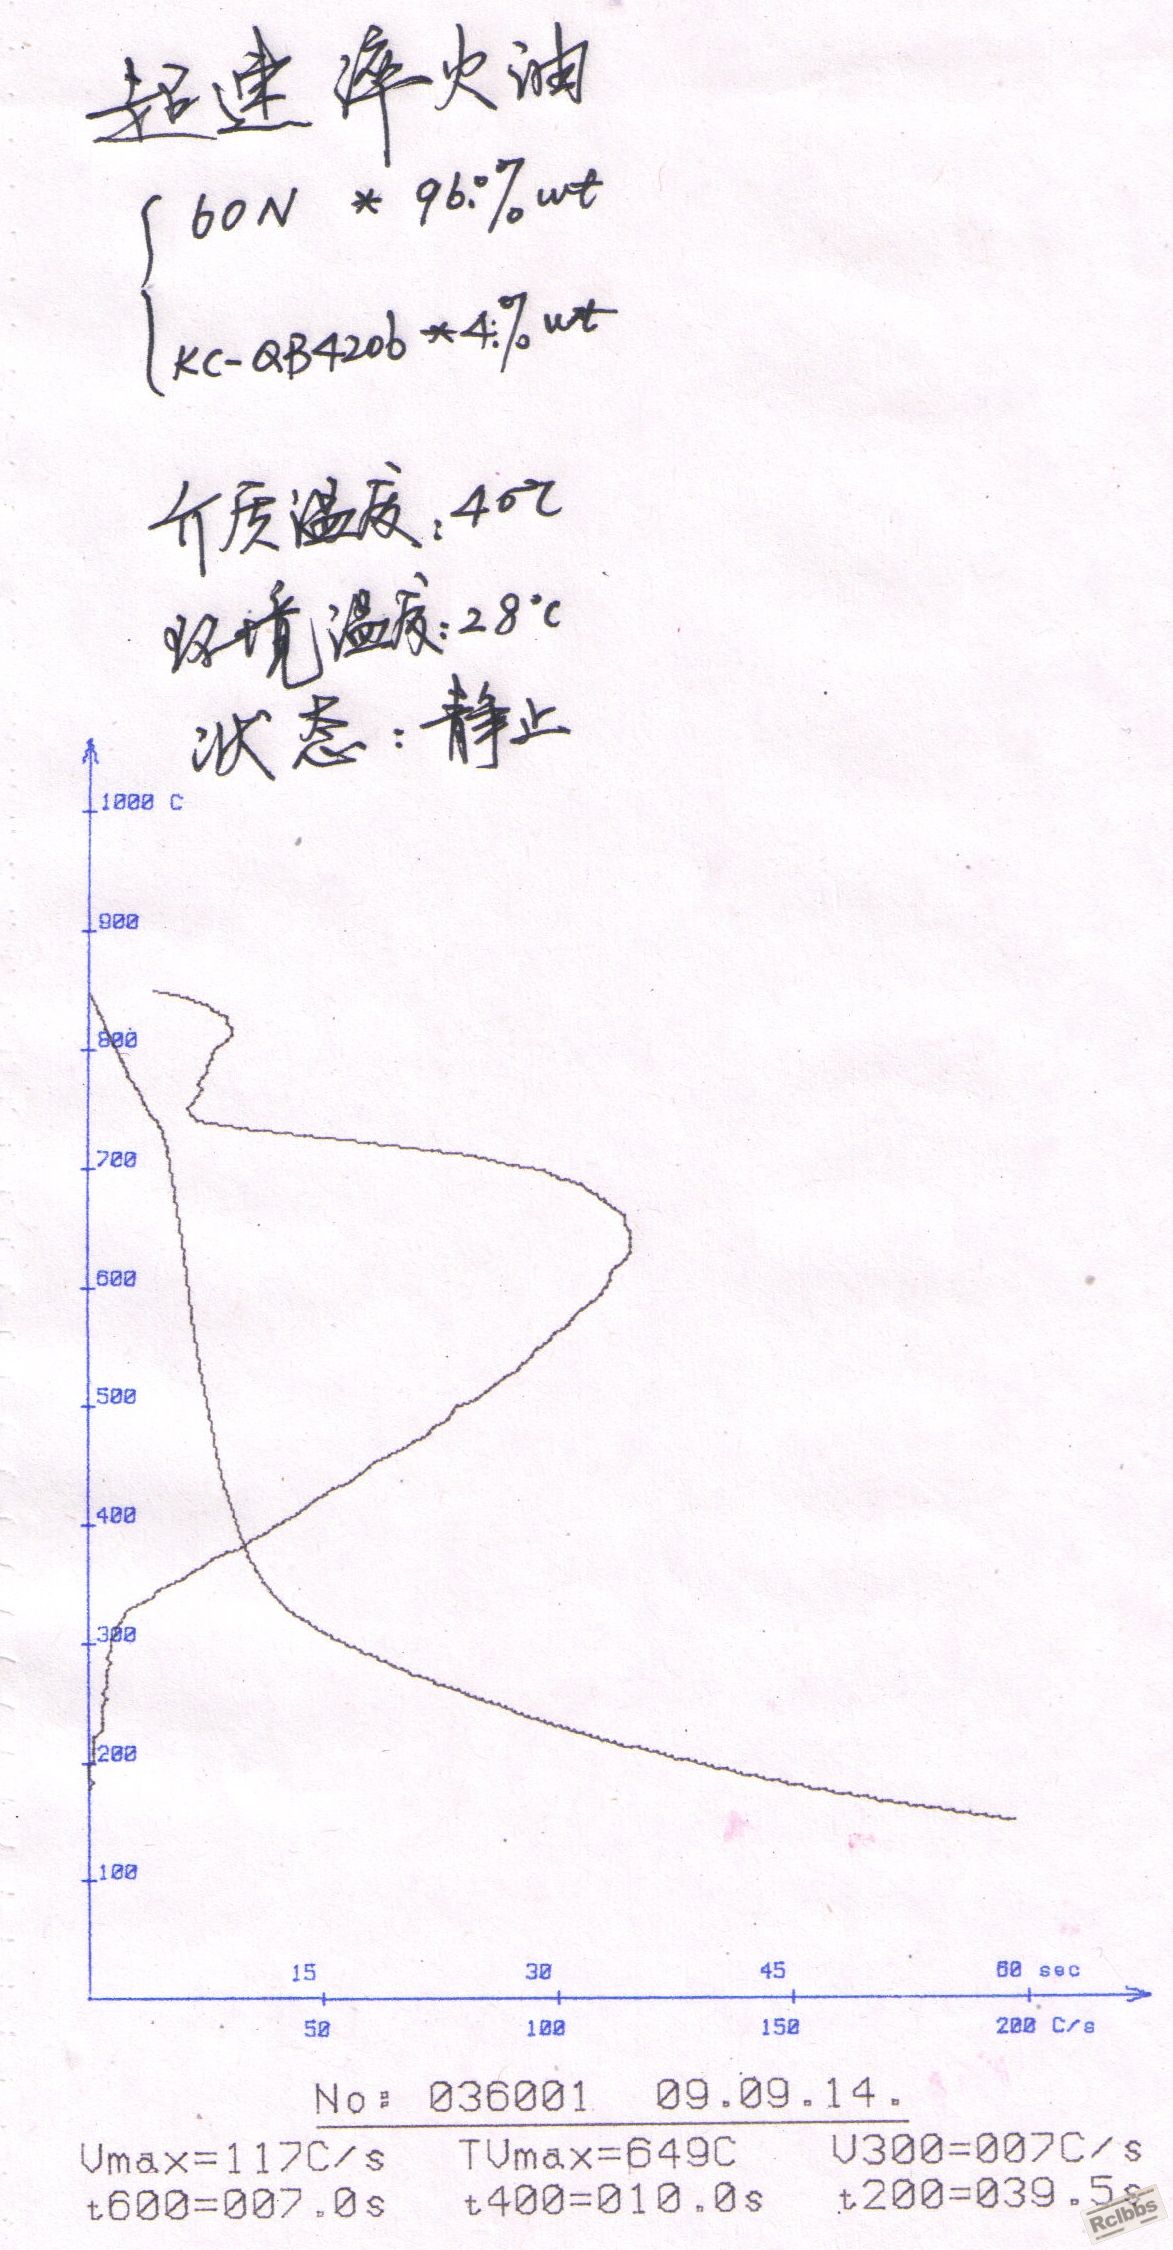 超速淬火油
60N * 96.% wt
KC-QB4206 * 4.% wt
介质温度:40℃
环境温度:28℃
状态:静止
1000 C
900
800
700
600
500
400
300
200
100
15 30 45 60 sec
50 100 150 200 C/s
No: 036001 09.09.14.
Vmax=117C/s TVmax=649C V300=007C/s
t600=007.0s t400=010.0s t200=039.5s
Rclbbs